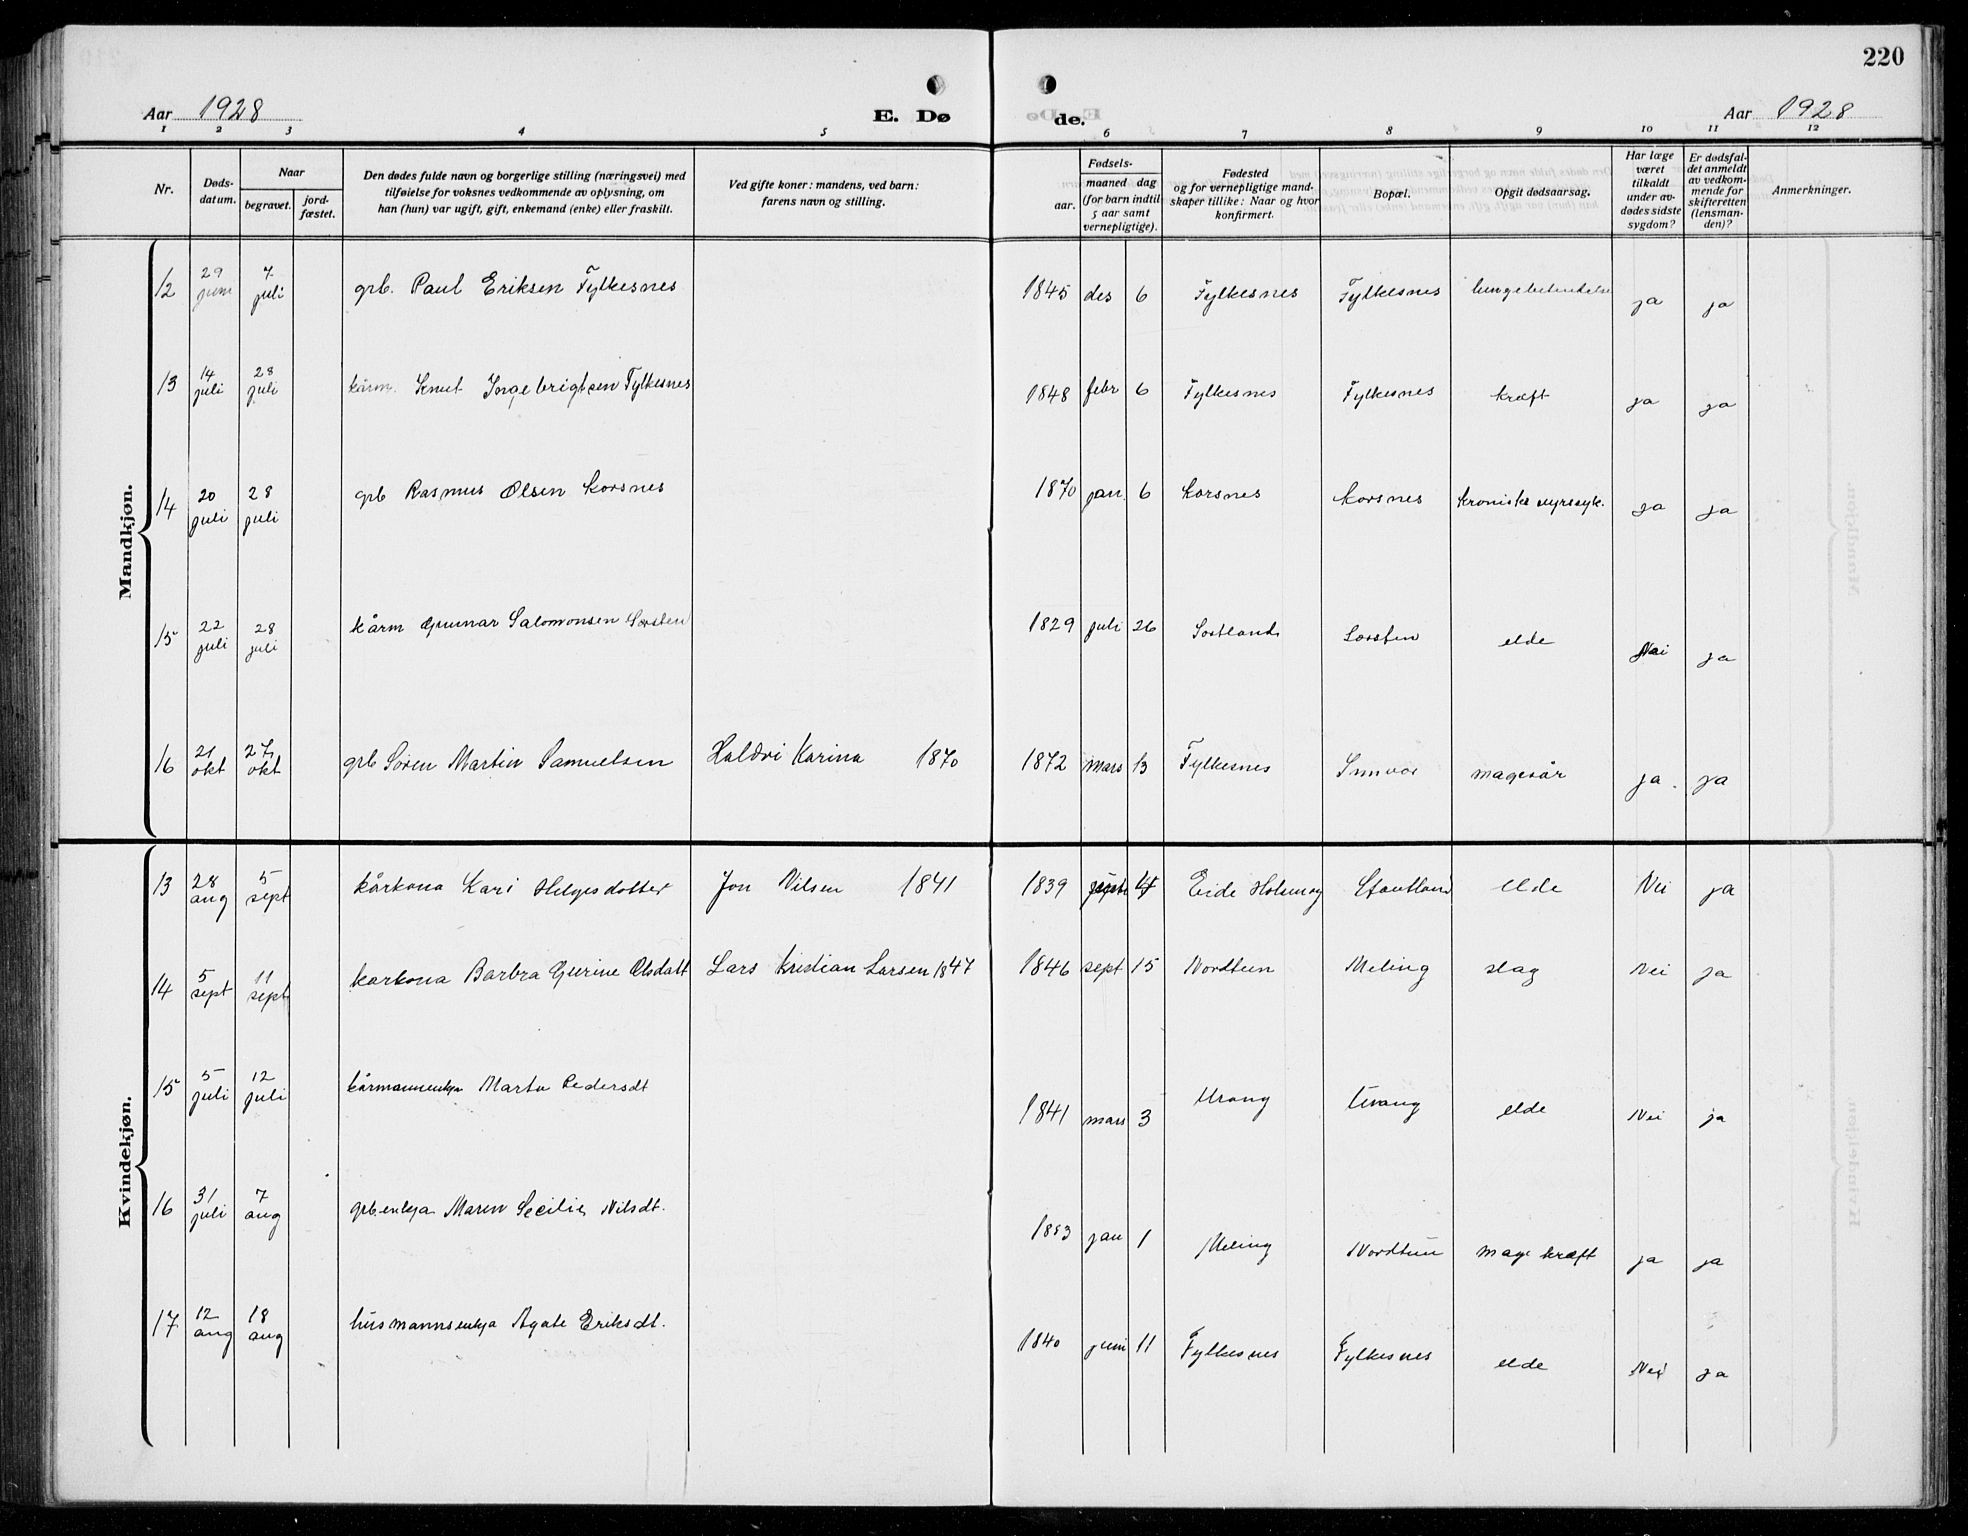 220
Aar 1928
E. Dø
de.
Aar 1928
1 2 3 4 5 6 7 8 9 10 11 12
Nr.
Døds-
datum.
Naar
begravet.
jord-
fæstet.
Den dødes fulde navn og borgerlige stilling (næringsvei) med
tilføielse for voksnes vedkommende av oplysning, om
han (hun) var ugift, gift, enkemand (enke) eller fraskilt.
Ved gifte koner: mandens, ved barn:
farens navn og stilling.
Fødsels-
aar.
maaned dag
(for barn indtil
5 aar samt
vernepligtige).
Fødested
og for vernepligtige mand-
skaper tillike: Naar og hvor
konfirmert.
Bopæl.
Opgit dødsaarsag.
Har læge
været
tilkaldt
under av-
dødes sidste
sygdom?
Er dødsfal-
det anmeldt
av vedkom-
mende for
skifteretten
(lensman-
den)?
Anmerkninger.
Mandkjøn.
12 29 juni 7 juli grb. Paul Eriksen Fylkesnes 1845 des 6 Fylkesnes Fylkesnes lungebetendelse ja ja
13 14 juli 28 juli kårm. Knut Ingebrigtsen Fylkesnes 1848 febr 6 Fylkesnes Fylkesnes kræft ja ja
14 20 juli 28 juli grb Rasmus Olsen Korsnes 1870 jan. 6 Korsnes Korsnes kroniske nyresyk. ja ja
15 22 juli 28 juli kårm Gunnar Salomonsen 1829 juli 26 elde Nei ja
16 21 okt 27 okt grb Søren Martin Samuelsen Haldri Karina 1870 1872 mars 13 Fylkesnes magesår ja. ja
Kvindekjøn.
13 28 aug 5 sept kårkona Kari Helgesdotter Jon Nilsen 1841 1839 Eide Stautland elde Nei ja
14 5 sept 11 sept karkona Barbra Gurine Olsdatt Lars Kristian Larsen 1847 1846 sept 15 Nordtun Meling slag Nei ja
15 5 juli 12 juli kårmannenkja Marta Pedersdt 1841 mars 3 Urang Urang elde Nei ja
16 31 juli 7 aug grb.enkja Maren Secilie Nilsdt. 1853 jan 1 Meling Nordtun mage kræft ja ja
17 12 aug 18 aug husmannsenkja Agate Eriksdt. 1840 juni 11 Fylkesnes Fylkesnes elde Nei ja